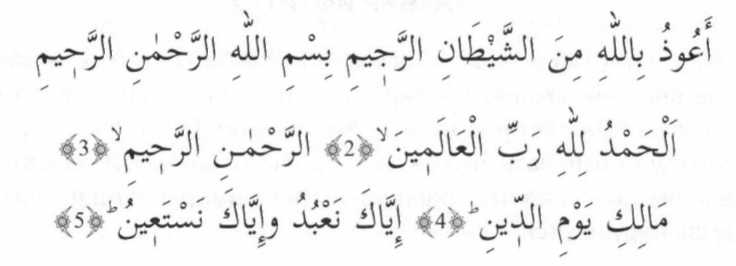 أَعُوذُ بِاللهِ مِنَ الشَّيْطَانِ الرَّجٖيمِ بِسْمِ اللهِ الرَّحْمٰنِ الرَّحٖيمِ
اَلْحَمْدُ لِلّٰهِ رَبِّ الْعَالَمٖينَۙ ﴿2﴾ الرَّحْمٰنِ الرَّحٖيمِۙ ﴿3﴾
مالِكِ يَوْمِ الدّٖينِؕ ﴿4﴾ إِيَّاكَ نَعْبُدُ وإِيَّاكَ نَستَعٖينُؕ ﴿5﴾